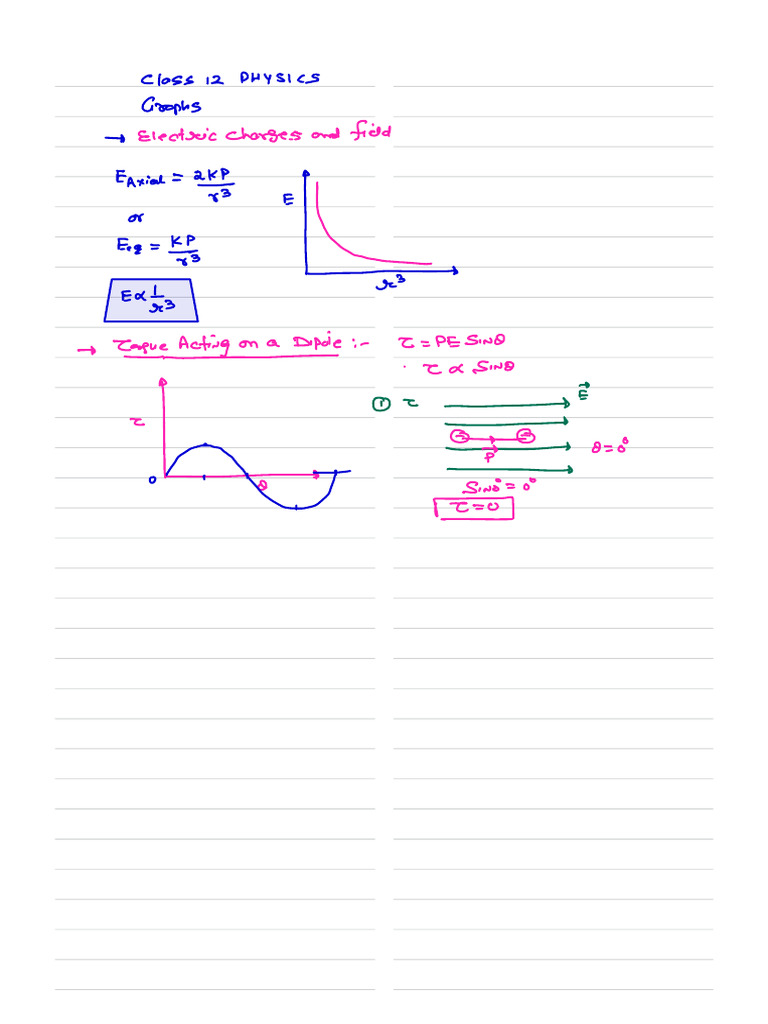 Class 12 PHYSICS
Graphs
→ Electric charges and field
E_Axial = 2KP/r³
or
E_eq = KP/r³
E ∝ 1/r³
E
r³
→ Torque Acting on a Dipole :-
τ = PE Sinθ
τ ∝ Sinθ
τ
0
θ
① τ
E⃗
P
θ = 0°
Sin0° = 0°
τ = 0